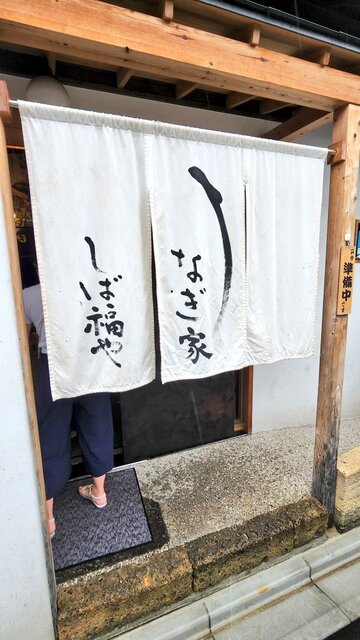 うなぎ家
しば福や
準備中